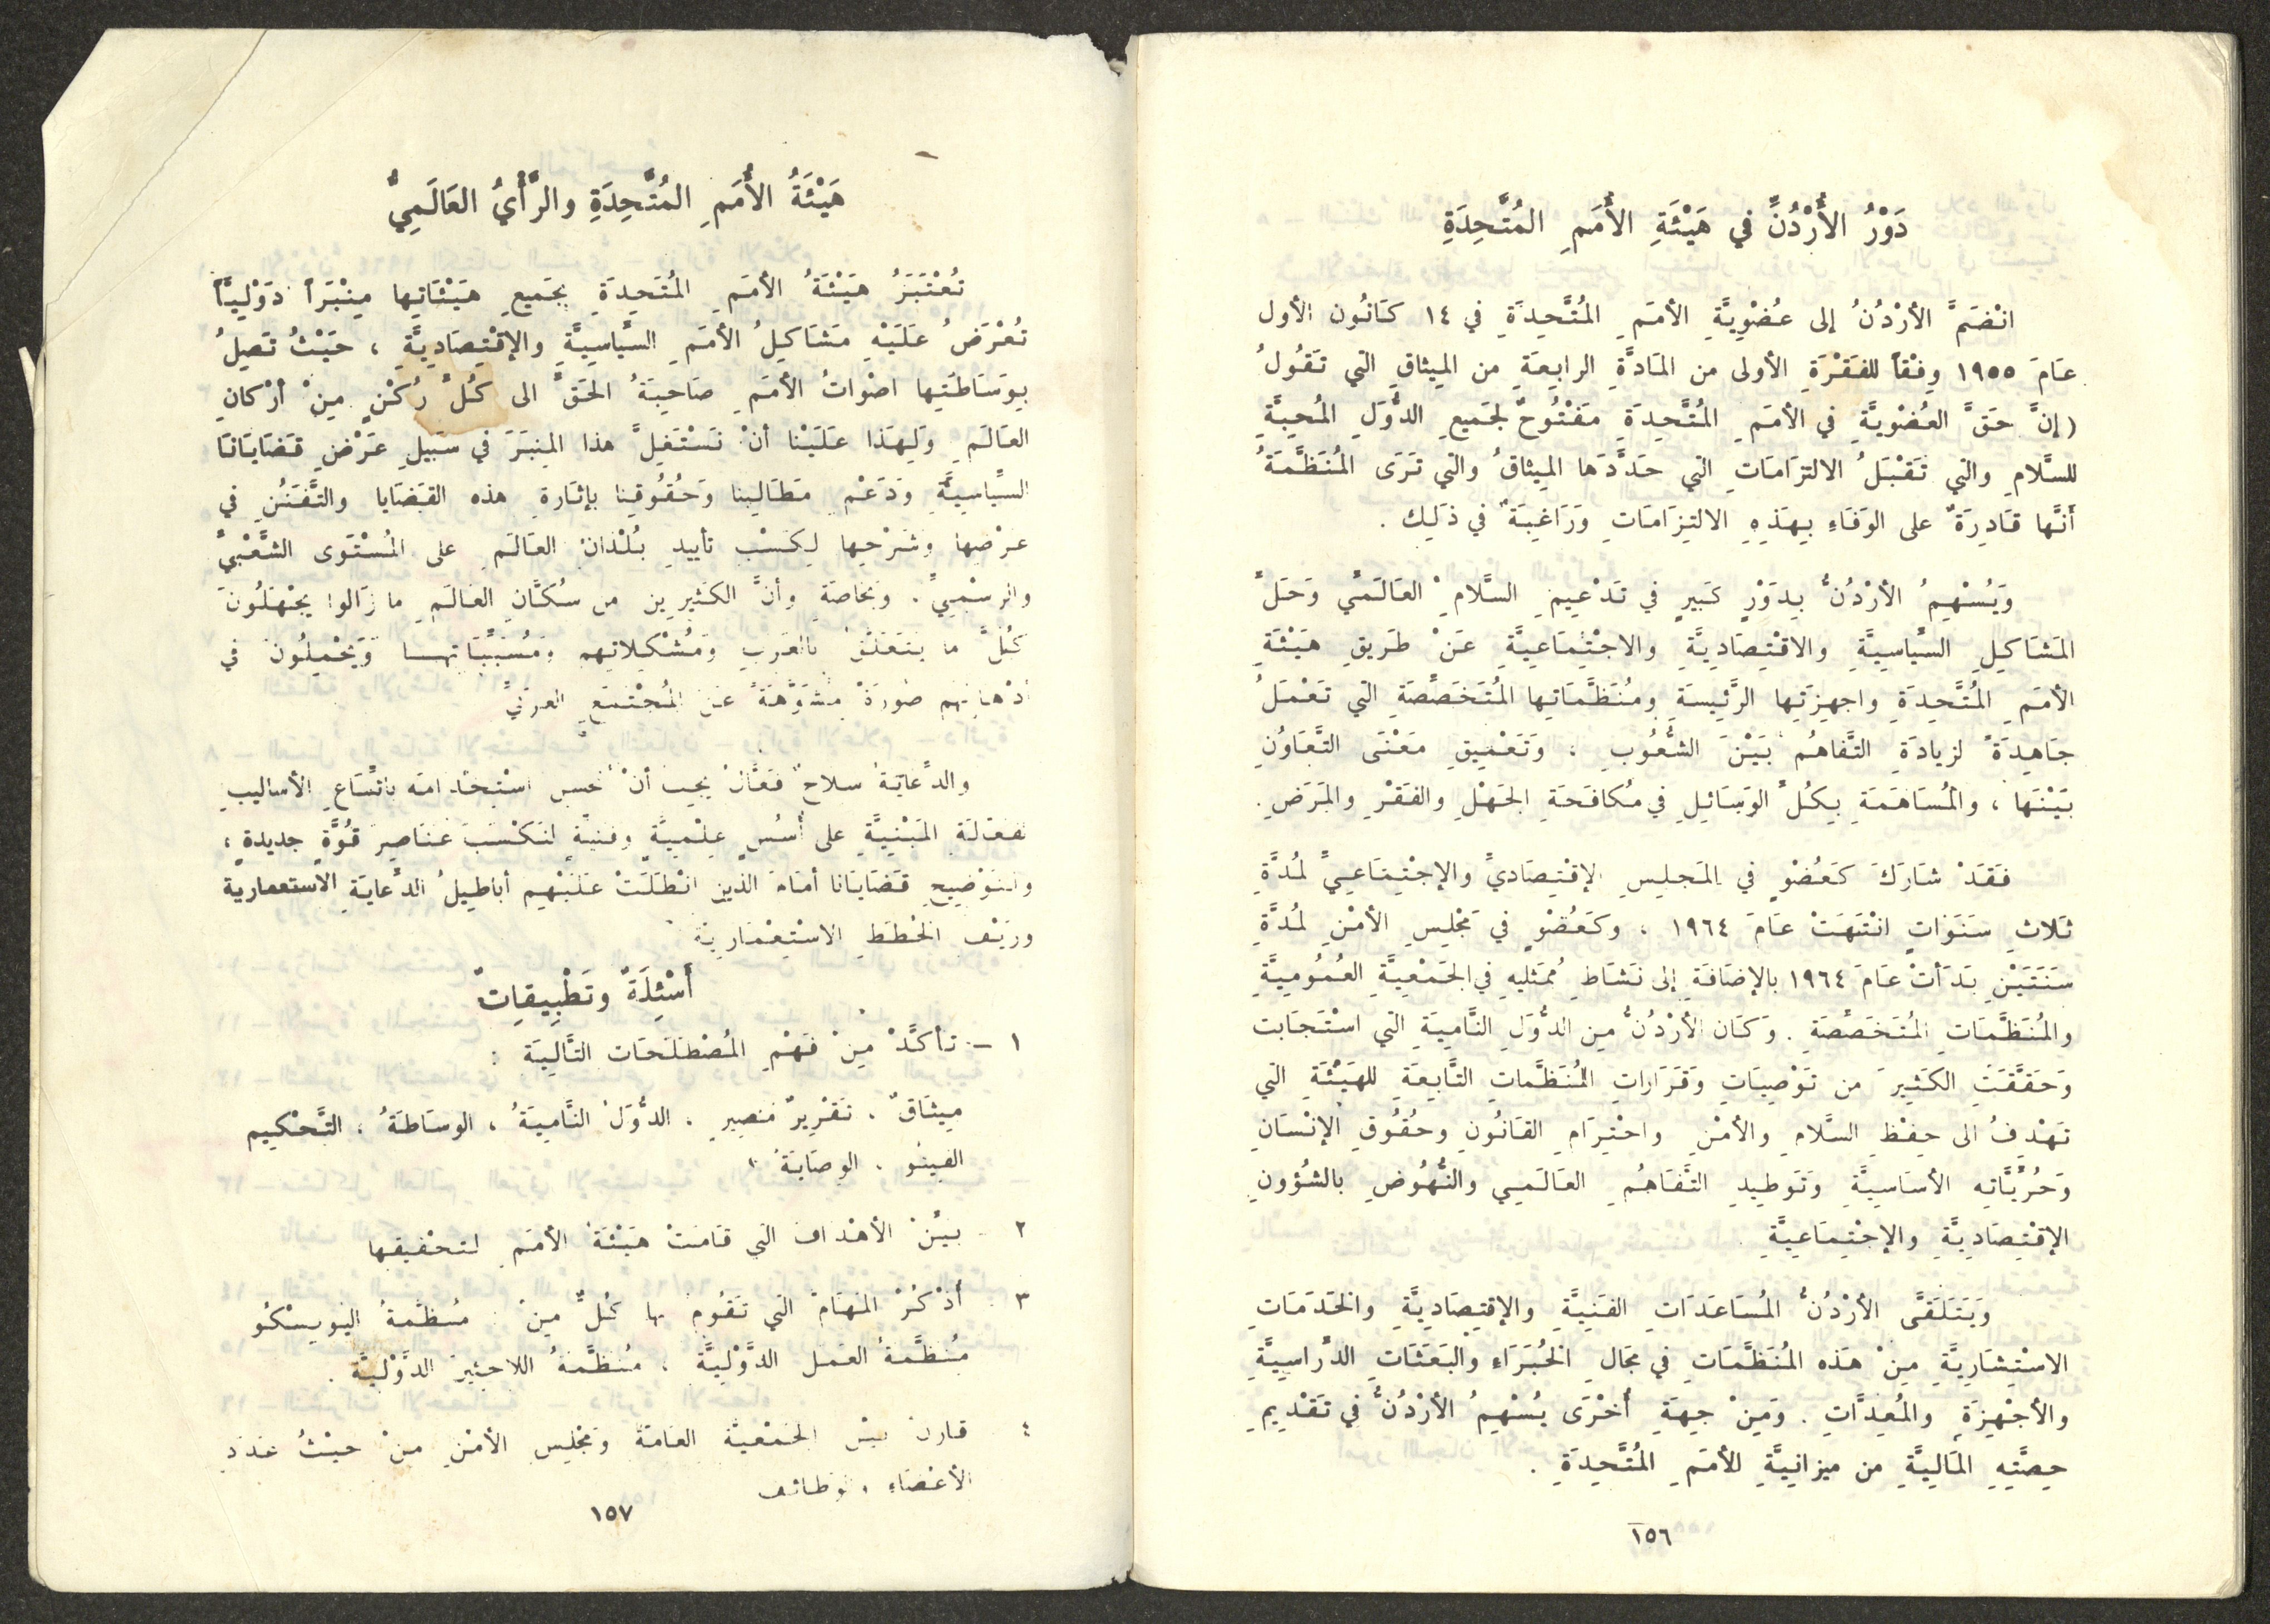 دَوْرُ الأُرْدُنِّ في هَيْئَةِ الأُمَمِ المُتَّحِدَةِ
انْضَمَّ الأرْدُنُ إلى عُضْوِيَّةِ الأمَمِ المُتَّحِدَةِ في ١٤ كَانُون الأول
عَامَ ١٩٥٥ وِفْقاً للفَقْرَةِ الأولى من المَادَّةِ الرابِعَةِ من المِيثاقِ التي تَقُولُ
( إنَّ حَقَّ العُضْوِيَّةِ في الأمَمِ المُتَّحِدَةِ مَفْتُوحٌ لجَميعِ الدُّوَلِ المُحِبَّةِ
للسَّلامِ والتي تَقْبَلُ الالتزَامَاتِ التي حَدَّدَها المِيثاقُ والتي تَرَى المُنَظَّمَةُ
أَنَّها قَادِرَةٌ على الوَفَاءِ بِهَذِهِ الالتِزَامَاتِ وَرَاغِبَةٌ في ذَلِك .
وَيُسْهِمُ الأرْدُنُّ بِدَوْرٍ كَبِيرٍ في تَدْعِيمِ السَّلامِ العَالَميِّ وَحَلِّ
المَشَاكِلِ السِّيَاسِيَّةِ والاقْتِصَادِيَّةِ والاجْتِمَاعِيَّةِ عَنْ طَرِيقِ هَيْئَةِ
الأمَمِ المُتَّحِدَةِ واجهِزَتِها الرَّئِيسَةِ ومُنَظَّمَاتِها المُتَخَصِّصَةِ التي تَعْمَلُ
جَاهِدَةً لزيادَةِ التَّفاهُم بَيْنَ الشُّعُوبِ ، وَتَعْمِيقِ مَعْنَى التَّعَاوُنِ
بَيْنَهَا ، والمُسَاهَمَةِ بِكُلِّ الوَسَائِلِ في مُكافَحَةِ الجَهْلِ والفَقْرِ والمَرَضِ .
فَقَدْ شَارَكَ كَعُضْوٍ في المَجلِسِ الإقْتِصَاديِّ والإجْتِمَاعِيِّ لمُدَّةِ
ثَلاثِ سَنَوَاتٍ انْتَهَتْ عَامَ ١٩٦٤ ، وكَعُضْوٍ في مَجْلِسِ الأمْنِ لمُدَّةِ
سَنَتَيْنِ بَدَأتْ عَامَ ١٩٦٤ بالإضَافَةِ إلى نَشَاطِ مُمَثِليهِ في الجَمْعِيَّةِ العُمُومِيَّةِ
والمُنَظَّمَاتِ المُتَخَصِّصَةِ . وَكَان الأرْدُنُّ مِن الدُّوَلِ النَّامِيَةِ التي اسْتَجَابت
وَحَقَّقَتِ الكَثِيرَ من تَوْصِيَاتِ وَقَرَاراتِ المُنَظَّماتِ التَّابِعَةِ للهَيْئَةِ التي
تَهْدِفُ الى حِفْظِ السَّلامِ والأمْنِ واحْتِرَامِ القَانُونِ وحُقُوقِ الإنْسَانِ
وَحُرِّيَّاتِه الأسَاسِيَّةِ وَتَوطِيدِ التَّفَاهُمِ العَالَمِي والنُّهُوضِ بالشُؤُونِ
الإقْتِصَادِيَّةِ والإجْتِمَاعِيَّةِ .
وَيَتَلَقَّى الأرْدُنُّ المُسَاعَدَاتِ الفَنِيَّةِ والإقتِصَادِيَّةِ والخَدَمَاتِ
الاسْتِشَارِيَّةِ مِنْ هَذه المُنَظَّمَاتِ في مَجَالِ الخُبَرَاءِ والبَعَثَاتِ الدِّرَاسِيَّةِ
والأجْهِزَةِ والمُعِدَّاتِ . وَمِنْ جِهَةٍ أُخْرَى يُسْهِمُ الأرْدُنُّ في تَقْدِيمِ
حِصَّتِهِ المَالِيَّةِ من مِيزانِيَّةِ للأمَمِ المُتَّحِدَةِ .
١٥٦
هَيْئَةُ الأُمَمِ المُتَّحِدَةِ والرَّأْيُ العَالَمِيُّ
تُعْتَبَرُ هَيْئَةُ الأمَمِ المُتَحِدَةِ بجَمِيعِ هَيْئَاتِها مِنْبَراً دَوْلِيَّاً
تُعْرَضُ عَلَيْهِ مَشَاكِلُ الأمَمِ السِّياسِيَّةِ والإقْتِصَادِيَّةِ ، حَيْثُ تَصِلُ
بِوَسَاطَتِها اصْواتُ الأمَمِ صَاحِبَةُ الحَقِّ الى كُلِّ رُكْنٍ مِنْ أرْكانِ
العَالَمِ وَلِهَذَا عَلَيْنا أنْ نَسْتَغِلَّ هذا المِنبَرَ في سَبيلِ عَرْضِ قَضَايَانَا
السِّيَاسِيَّةِ وَدَعْمِ مَطَالِبنا وَحُقُوقِنا بإثَارةِ هذه القَضَايا والتَّفَنُنِ في
عَرْضِها وشَرْحِها لِكَسْبِ تأييدِ بُلْدَانِ العَالَمِ على المُسْتَوى الشَّعْبيِّ
والرسْمِيِّ . وبخَاصَةِ وأنَّ الكَثِيرِين من سُكَّانِ العَالَمِ ما زَالوا يجْهَلُونَ
كُلَّ ما يتَعَلَّقُ بالعَرَبِ وَمُشْكِلاتِهِم وَمُسَبِّبَاتِهَا وَيَحْمِلُونَ في
أذْهانِهِم صُورَةً مُشَوَّهَةً عَنِ المُجْتَمَعِ العَرَبيِّ
والدِّعَايَةُ سلاحٌ فَعَّالٌ يجِبُ أنْ نُحسِنَ اسْتِخْدَامَه باتِّسَاعِ الأساليبِ
الفَعَّالَةِ المَبْنِيَّةِ على أُسُسٍ عِلْمِيَّةٍ وفنيَّةٍ لنَكْسَبَ عَنَاصِرَ قُوَّةٍ جديدةٍ ،
ولتَوْضِيحِ قَضَايَانا أمَامَ الذين انْطَلَتْ عَلَيْهِم أباطِيلُ الدِّعايَةِ الاستعمارية
وزَيْف الخُطَطِ الاسْتِعْمَارِيَّة
أَسْئِلَةٌ وتَطْبِيقاتٌ
١ – تأكَّدْ مِنْ فَهْمِ المُصْطَلَحَات التَّالِيَة :
مِيثَاقٌ ، تَقْرِيرُ مَصِيرِ ، الدُّوَلُ النَّامِيَةُ ، الوسَاطَةُ ، التَّحْكيم
الفيتو ، الوصَايَةُ .
٢ – بيِّنْ الأهْدافَ التي قَامَتْ هَيْئَةُ الأمَمِ لتحْقيقِها
٣ – أُذْكُرْ المَهَامَ التي تَقُومُ بها كُلٌّ مِنْ : مُنظَّمةُ اليُونِسْكُو
مُنظَّمَةُ العَمَل الدَّوْلِيَّة ، مُنظَّمَةُ اللاجئِين الدَّوْلِيَّة .
٤ – قارن بيْنَ الجَمْعِيَّة العَامَّة وَمَجْلِس الأمْن منْ حيْثُ عَدَدِ
الأعْضَاءِ ، وَظائف
١٥٧